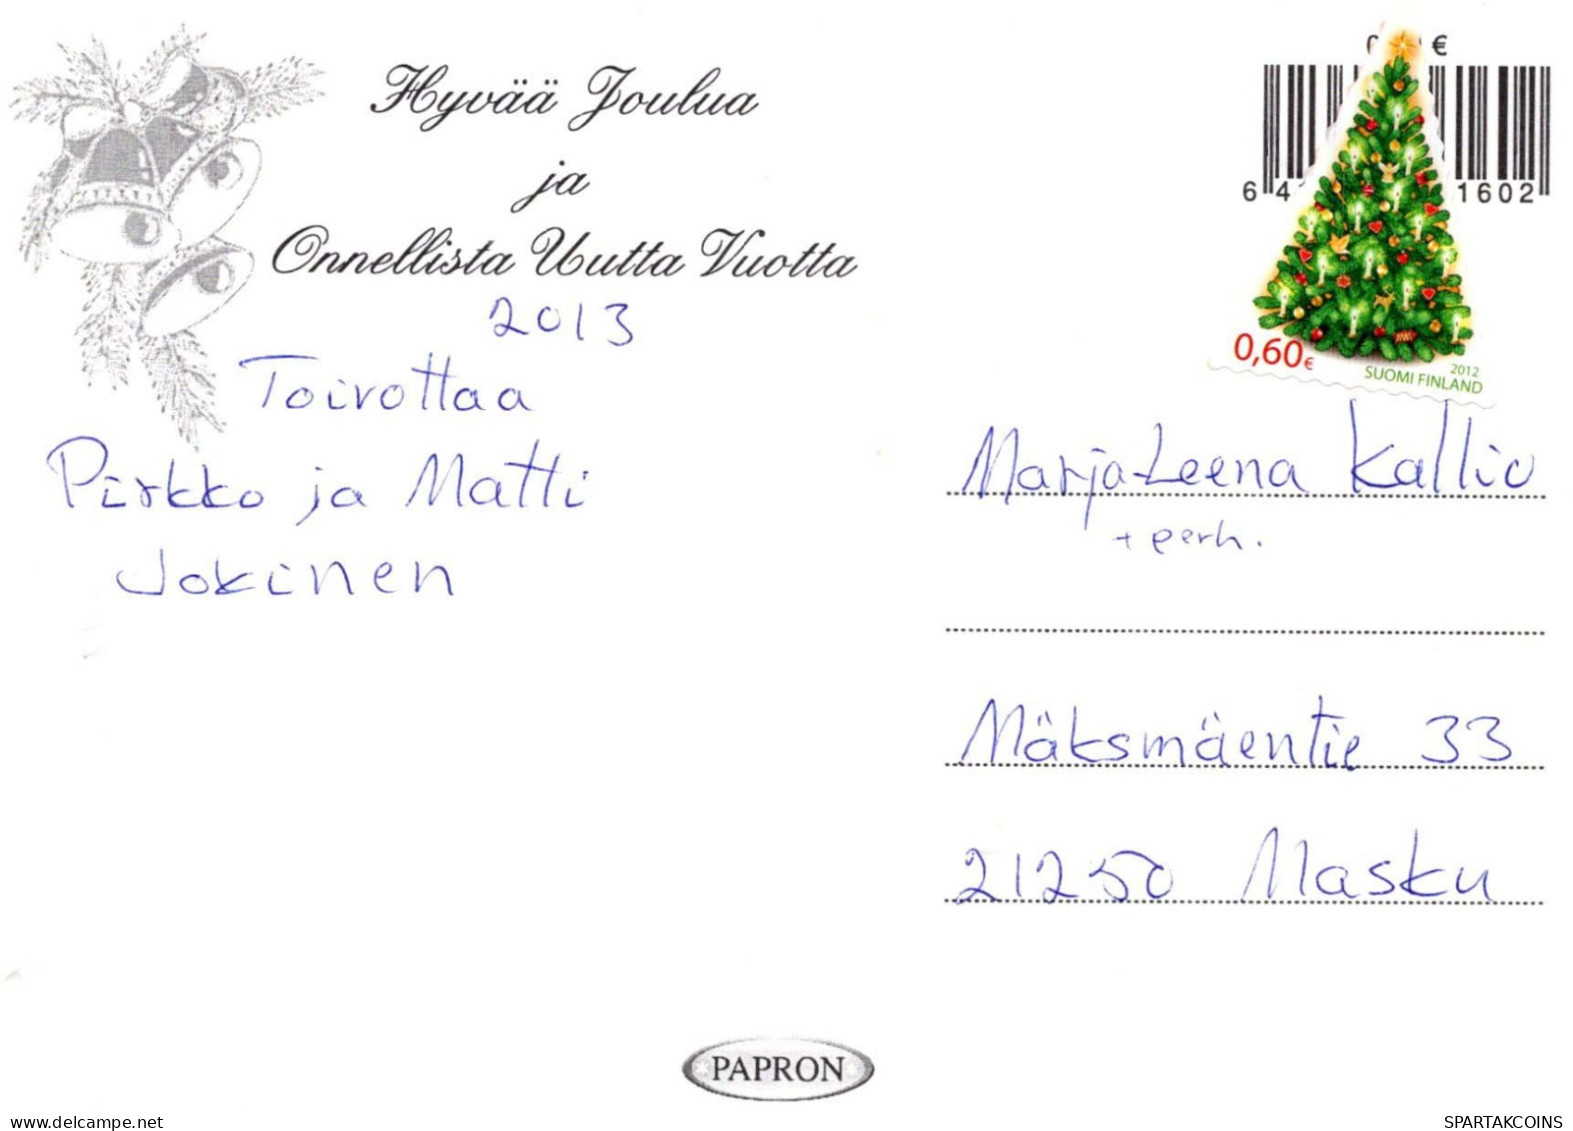 Hyvää Joulua
ja
Onnellista Uutta Vuotta
2013
Toivottaa
Pirkko ja Matti
Jokinen
€
6 4
1602
0,60€
2012
SUOMI FINLAND
Marja-Leena Kallio
+ perh.
Mäksmäentie 33
21250 Masku
PAPRON
www.delcampe.net
SPARTAKCOINS